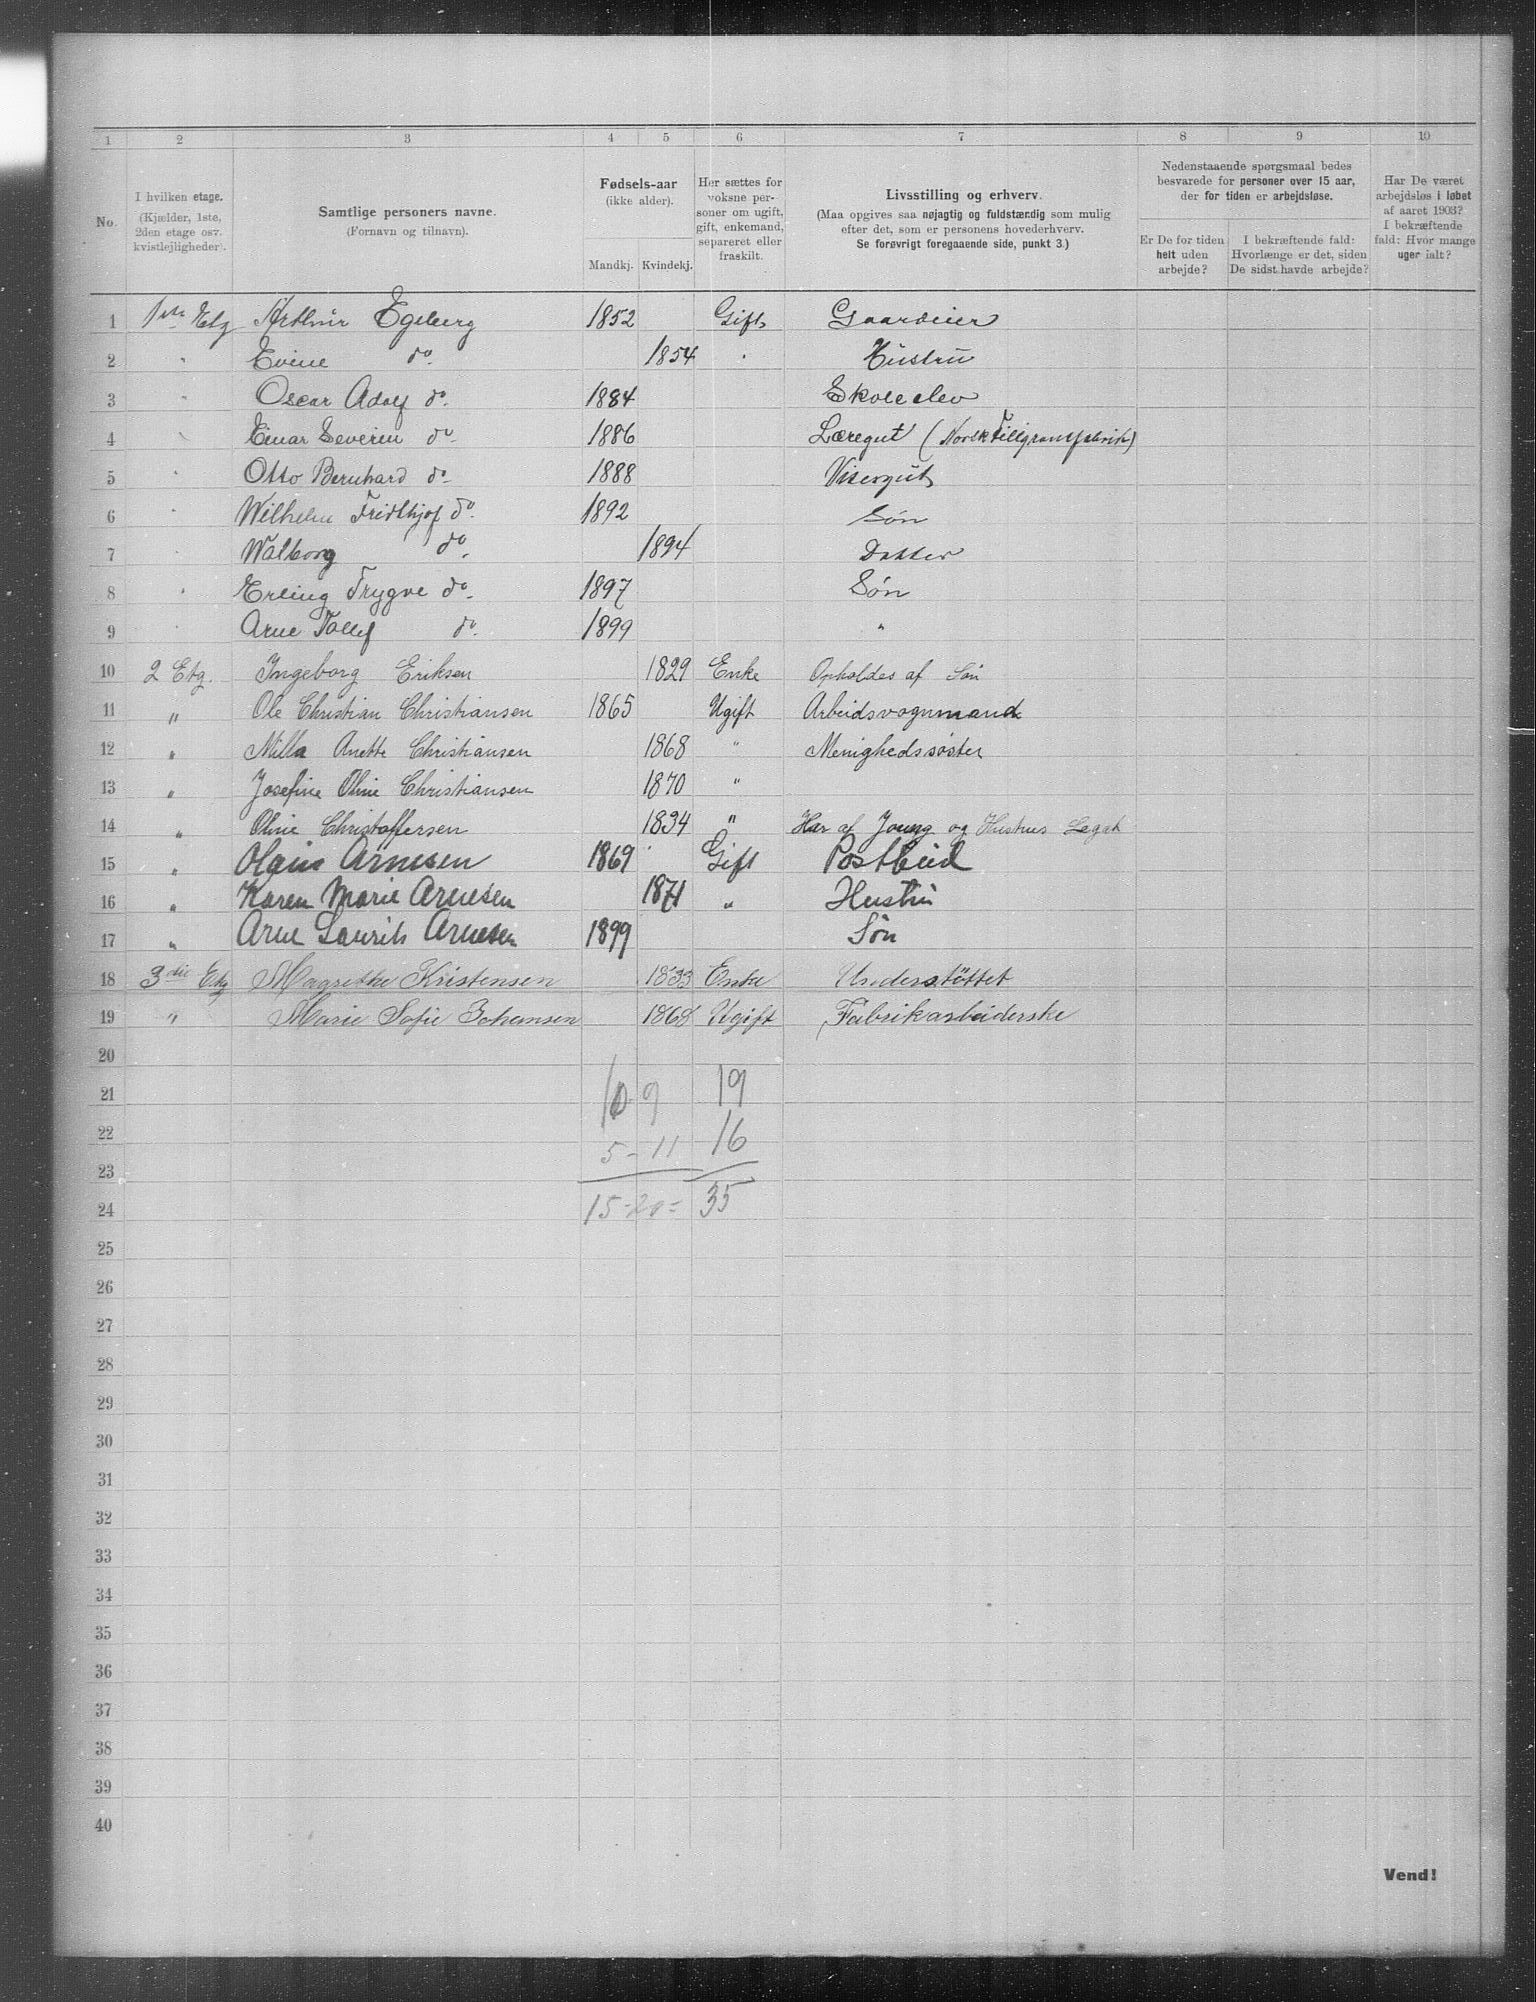 1 2 3 4 5 6 7 8 9 10
No.
I hvilken etage.
(Kjælder, 1ste,
2den etage osv.
kvistlejligheder).
Samtlige personers navne.
(Fornavn og tilnavn).
Fødsels-aar
(ikke alder).
Mandkj. Kvindekj.
Her sættes for
voksne per-
soner om ugift,
gift, enkemand,
separeret eller
fraskilt.
Livsstilling og erhverv.
(Maa opgives saa nøjagtig og fuldstændig som mulig
efter det, som er personens hovederhverv.
Se forøvrigt foregaaende side, punkt 3.)
Nedenstaaende spørgsmaal bedes
besvarede for personer over 15 aar,
der for tiden er arbejdsløse.
Er De for tiden
helt uden
arbejde?
I bekræftende fald:
Hvorlænge er det, siden
De sidst havde arbejde?
Har De været
arbejdsløs i løbet
af aaret 1903?
I bekræftende
fald: Hvor mange
uger ialt?
1 1ste Etg Arthur Egeberg 1852 Gift Gaardeier
2 " Evine do. 1854 " Hustru
3 " Oscar Adolf do. 1884 Skoleelev
4 " Einar Severin do. 1886 Læregut (Norsk Filigransfabrik)
5 " Otto Bernhard do. 1888 Visergut
6 " Wilhelm Fridthjof do. 1892 Søn
7 " Walborg do. 1894 Datter
8 " Erling Trygve do. 1897 Søn
9 " Arne Tollef do. 1899 "
10 2 Etg. Ingeborg Eriksen 1829 Enke Opholdes af Søn
11 " Ole Christian Christiansen 1865 Ugift Arbeidsvognmand
12 " Milla Anette Christiansen 1868 " Menighedssøster
13 " Josefine Oline Christiansen 1870 "
14 " Oline Christoffersen 1834 " Har af Young og Hustrus Legat
15 " Olaus Arnesen 1869 Gift Postbud
16 " Karen Marie Arnesen 1871 " Hustru
17 " Arne Laurits Arnesen 1899 Søn
18 3die Etg Magrethe Kristensen 1833 Enke Understøttet
19 " Marie Sofie Johansen 1868 Ugift Fabrikarbeiderske
20
21 10 9 19
22 5 - 11 16
23
24 15 - 20 = 35
25
26
27
28
29
30
31
32
33
34
35
36
37
38
39
40
Vend!